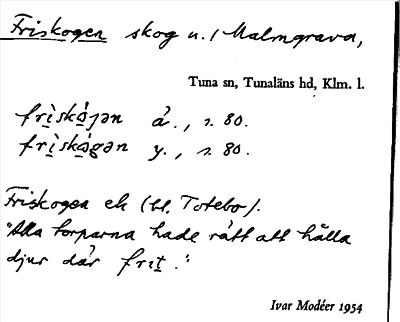 Friskogen skog u. / Malmgrava,
Tuna sn, Tunaläns hd, Klm. l.
frìskǫ́gən ä., s. 80.
frìskǫ́gən y., s. 80.
Friskogen ek (bl. Totebo).
"Alla torparna hade rätt att hålla
djur där frit."
Ivar Modéer 1954